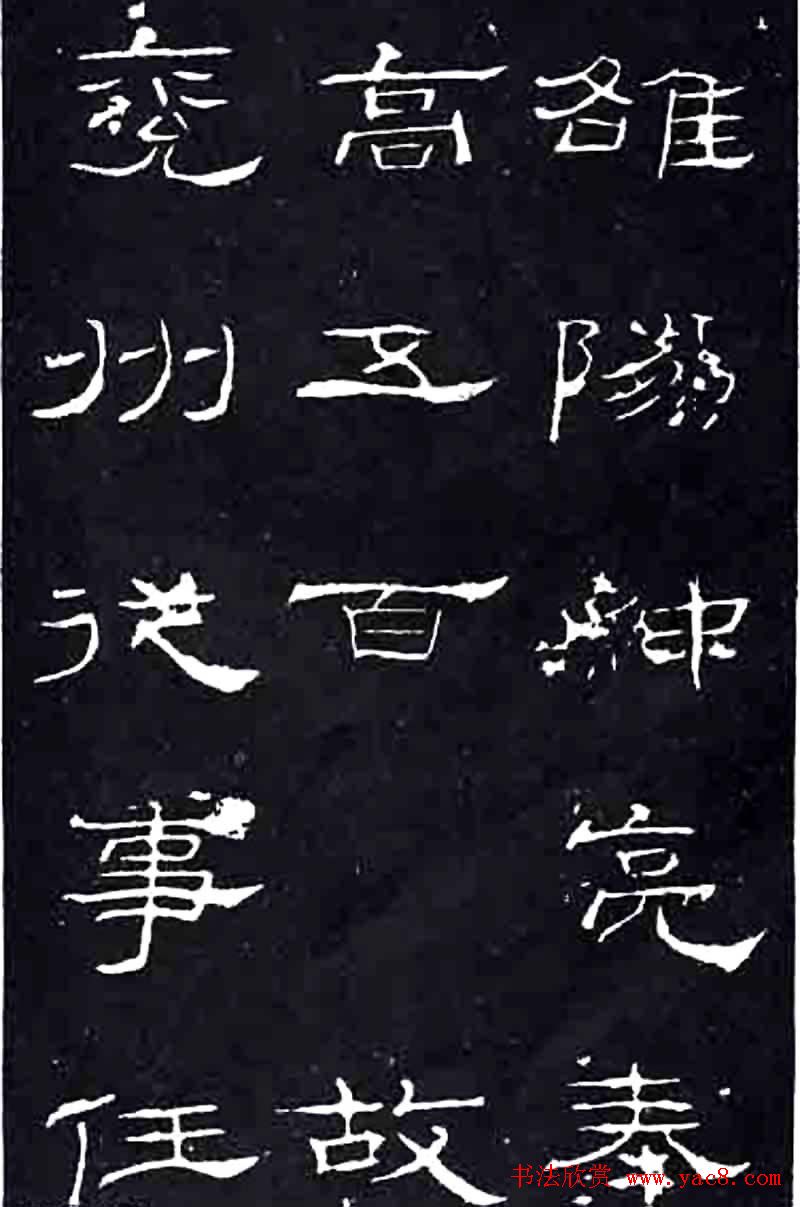 雒陽种亮奉
高五百 故
兗州從事任
书法欣赏 www.yac8.com